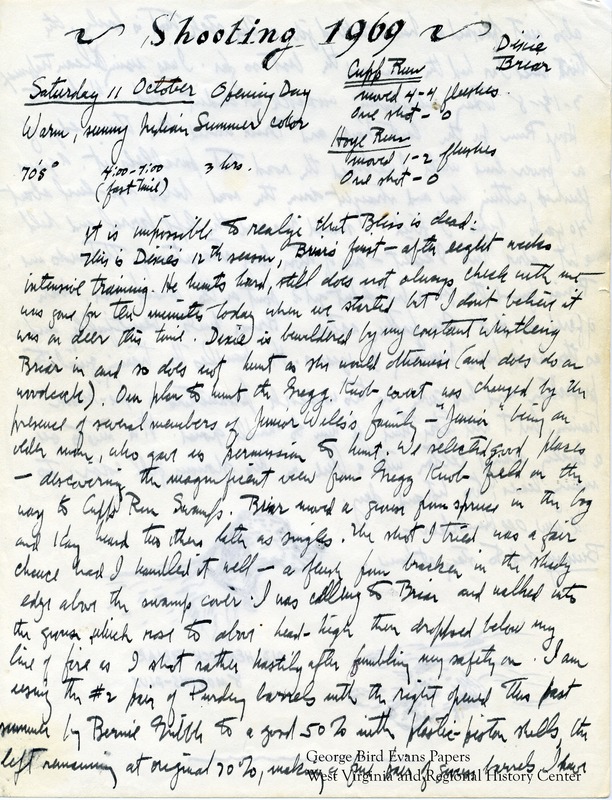 ~ Shooting 1969 ~
Dixie
Briar
Saturday 11 October Opening Day
Warm, sunny Indian Summer color
70's° 4:00-7:00 3 hrs.
(fast time)
Cupp Run
moved 4-4 flushes
One shot - 0
Hoye Run
moved 1-2 flushes
One shot - 0
It is impossible to realize that Bliss is dead.
This is Dixie's 12th season, Briar's first - after eight weeks
intensive training. He hunts hard, still does not always check with me
was gone for ten minutes today when we started but I don't believe it
was on deer this time. Dixie is bewildered by my constant whistling
Briar in and so does not hunt as she would otherwise (and does do on
woodcock). Our plan to hunt the Gregg Knob covert was changed by the
presence of several members of Junior Wilso's family - "Junior" being an
older man, who gave us permission to hunt. We selected good places
- discovering the magnificent view from Gregg Knob field on the
way to Cupp Run Swamp. Briar moved a grouse from spruce in the bog
and Kay heard two others later as singles. The shot I tried was a fair
chance had I handled it well - a flush from bracken in the shady
edge above the swamp cover. I was calling to Briar and walked into
the grouse which rose to about head-high then dropped below my
line of fire as I shot rather hastily after fumbling my safety on. I am
using the #2 pair of Purdey barrels with the right opened this past
summer by Bernie to a good 50% with plastic-piston shells, the
left remaining at original 70%, making a fine pair of grouse barrels. I have
George Bird Evans Papers
West Virginia and Regional History Center